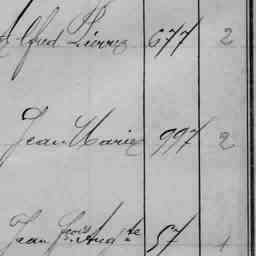 Alfred Pierre 677 2
Jean Marie 997 2
Jean Fçois Augte 57 1